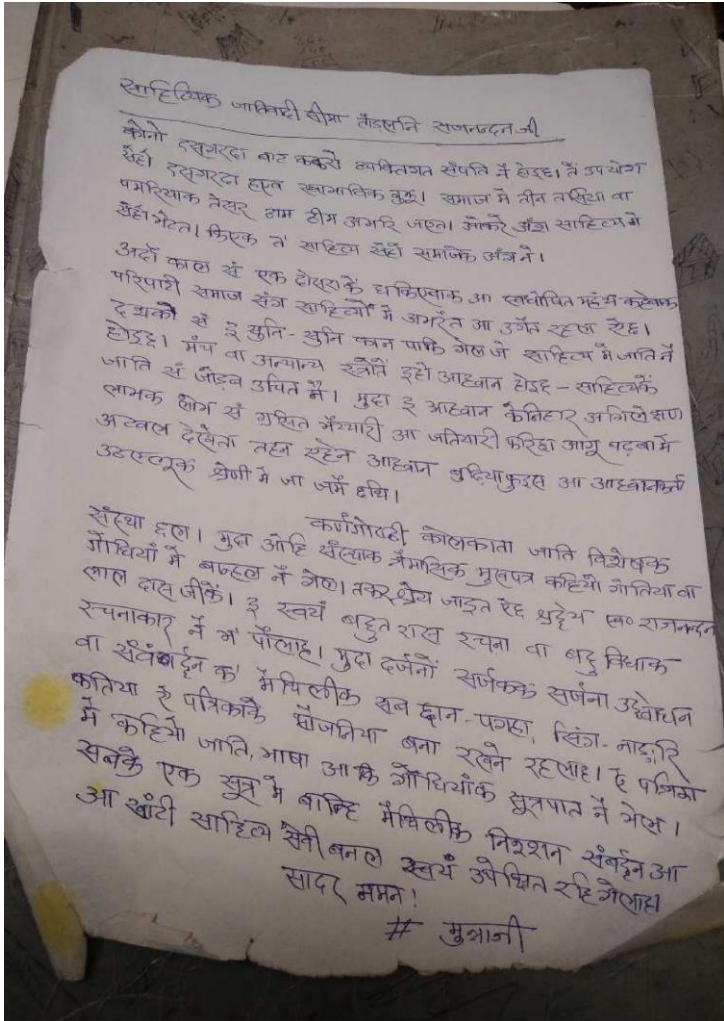 साहित्यिक जातिवादी सीमा तोड़लनि राजनन्दन जी
कोनो दसगरदा बाट ककरो व्यक्तिगत संपति नै होइछ। तें उपयोग
सेहो दसगरदा हएब स्वाभाविक बुझू। समाज मे तीन तसिया वा
पमरियाक तेसर ठाम ठीम अभरि जएत। ओकरे अंश साहित्य मे
सेहो भेटत। किएक तँ साहित्य सेहो समाजेक अंश ने।
अदौ काल सं एक दोसराकें धकिएबाक आ स्वघोषित महंथ कहेबाक
परिपाटी समाज संग साहित्यो मे अभरैत आ उगैत रहल ऐछ।
दशको सं इ सुनि-सुनि कान पाकि गेल जे साहित्य मे जाति नै
होइछ। मंच वा अन्यान्य स्त्रोतें इहो आहवान होइछ - साहित्यकें
जाति सं जोड़ब उचित नै। मुदा इ आहवान केनिहार अगिले क्षण
लाभक लोभ सं ग्रसित भैय्यारी आ जतियारी फरिछा आगू बढ़बा मे
अटवल देखेता तहन एहेन आहवान बुढ़ियाफुइस आ आहवानकर्ता
उढल्लूक श्रेणी मे जा जमै छथि।
कर्णगोष्ठी कोलकाता जाति विशेषक
संस्था छल। मुदा ओहि संस्थाक त्रैमासिक मुखपत्र कहियो जातिया वा
गोधियाँ मे बान्हल नै गेल। तकर श्रेय जाइत ऐछ श्रद्धेय स्व० राजनन्दन
लाल दास जीकें। इ स्वयं बहुत रास रचना वा बहु विधाक
रचनाकार नै भ' पौलाह। मुदा दर्जनों सर्जकक सर्जना उद्बोधन
वा संवर्द्धन क' मैथिलीक सब छान-पगहा, सिंग-नाङ्गरि
कतिया ऐ पत्रिकाकें सोजनिया बना रखने रहलाह। ऐ पत्रिका
मे कहियो जाति, भाषा आकि गोधियाँक सूत्रपात नै भेल।
सबकें एक सूत्र मे बान्हि मैथिलीक निश्शन संबर्द्धन आ
आ खाँटी साहित्य सेवी बनल स्वयं उपेक्षित रहि गेलाह।
सादर नमन!
# मुन्नाजी